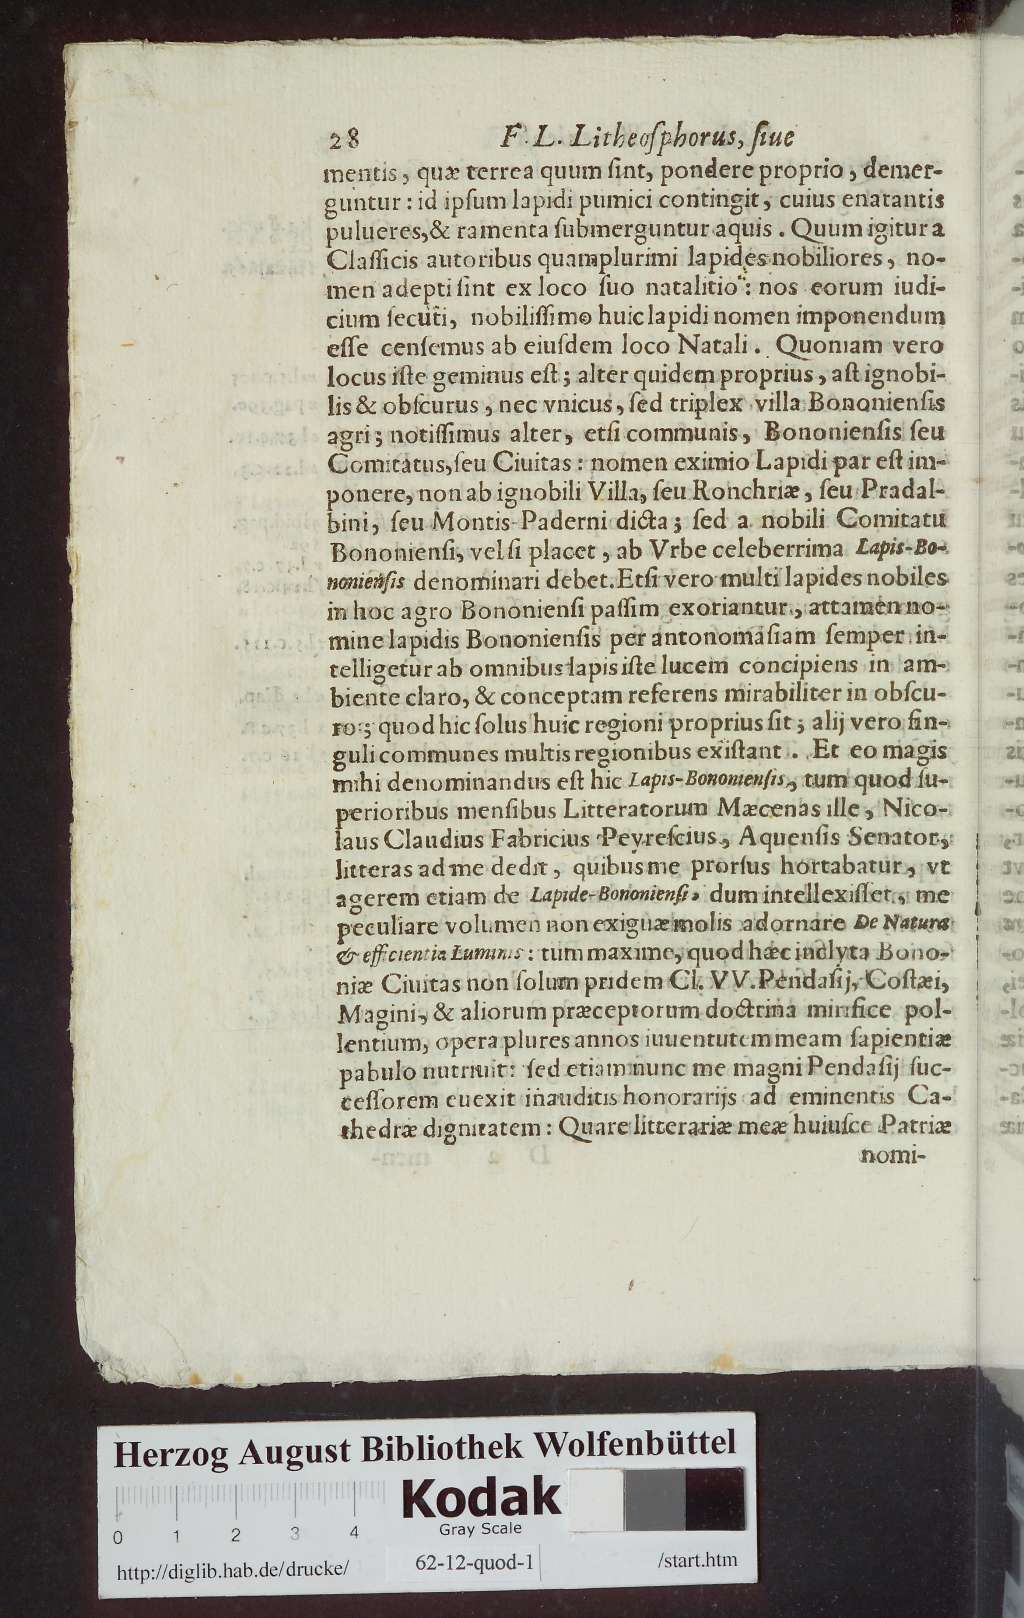 28 F. L. Litheosphorus, ſiue
mentis, quæ terrea quum ſint, pondere proprio, demer-
guntur: id ipſum lapidi pumici contingit, cuius enatantis
pulueres, & ramenta ſubmerguntur aquis. Quum igitur a
Claſſicis autoribus quamplurimi lapides nobiliores, no-
men adepti ſint ex loco ſuo natalitio: nos eorum iudi-
cium ſecuti, nobiliſſimo huic lapidi nomen imponendum
eſſe cenſemus ab eiuſdem loco Natali. Quoniam vero
locus iſte geminus eſt; alter quidem proprius, aſt ignobi-
lis & obſcurus, nec vnicus, ſed triplex villa Bononienſis
agri; notiſſimus alter, etſi communis, Bononienſis ſeu
Comitatus, ſeu Ciuitas: nomen eximio Lapidi par eſt im-
ponere, non ab ignobili Villa, ſeu Ronchriæ, ſeu Pradal-
bini, ſeu Montis Paderni dicta; ſed a nobili Comitatu
Bononienſi, vel ſi placet, ab Vrbe celeberrima Lapis-Bo-
nonienſis denominari debet. Etſi vero multi lapides nobiles
in hoc agro Bononienſi paſſim exoriantur, attamen no-
mine lapidis Bononienſis per antonomaſiam ſemper in-
telligetur ab omnibus lapis iſte lucem concipiens in am-
biente claro, & conceptam referens mirabiliter in obſcu-
ro; quod hic ſolus huic regioni proprius ſit; alij vero ſin-
guli communes multis regionibus exiſtant. Et eo magis
mihi denominandus eſt hic Lapis-Bononienſis, tum quod ſu-
perioribus menſibus Litteratorum Mæcenas ille, Nico-
laus Claudius Fabricius Peyreſcius, Aquenſis Senator,
litteras ad me dedit, quibus me prorſus hortabatur, vt
agerem etiam de Lapide-Bononienſi, dum intellexiſſet, me
peculiare volumen non exiguæ molis adornare De Natura
& efficientia Luminis: tum maxime, quod hæc inclyta Bono-
niæ Ciuitas non ſolum pridem Cl. VV. Pendaſij, Coſtæi,
Magini, & aliorum præceptorum doctrina mirifice pol-
lentium, opera plures annos iuuentutem meam ſapientiæ
pabulo nutriuit: ſed etiam nunc me magni Pendaſij ſuc-
ceſſorem euexit inauditis honorarijs ad eminentis Ca-
thedræ dignitatem: Quare litterariæ meæ huiuſce Patriæ
nomi-
Herzog August Bibliothek Wolfenbüttel
Kodak
Gray Scale
0 1 2 3 4
http://diglib.hab.de/drucke/ 62-12-quod-1 /start.htm